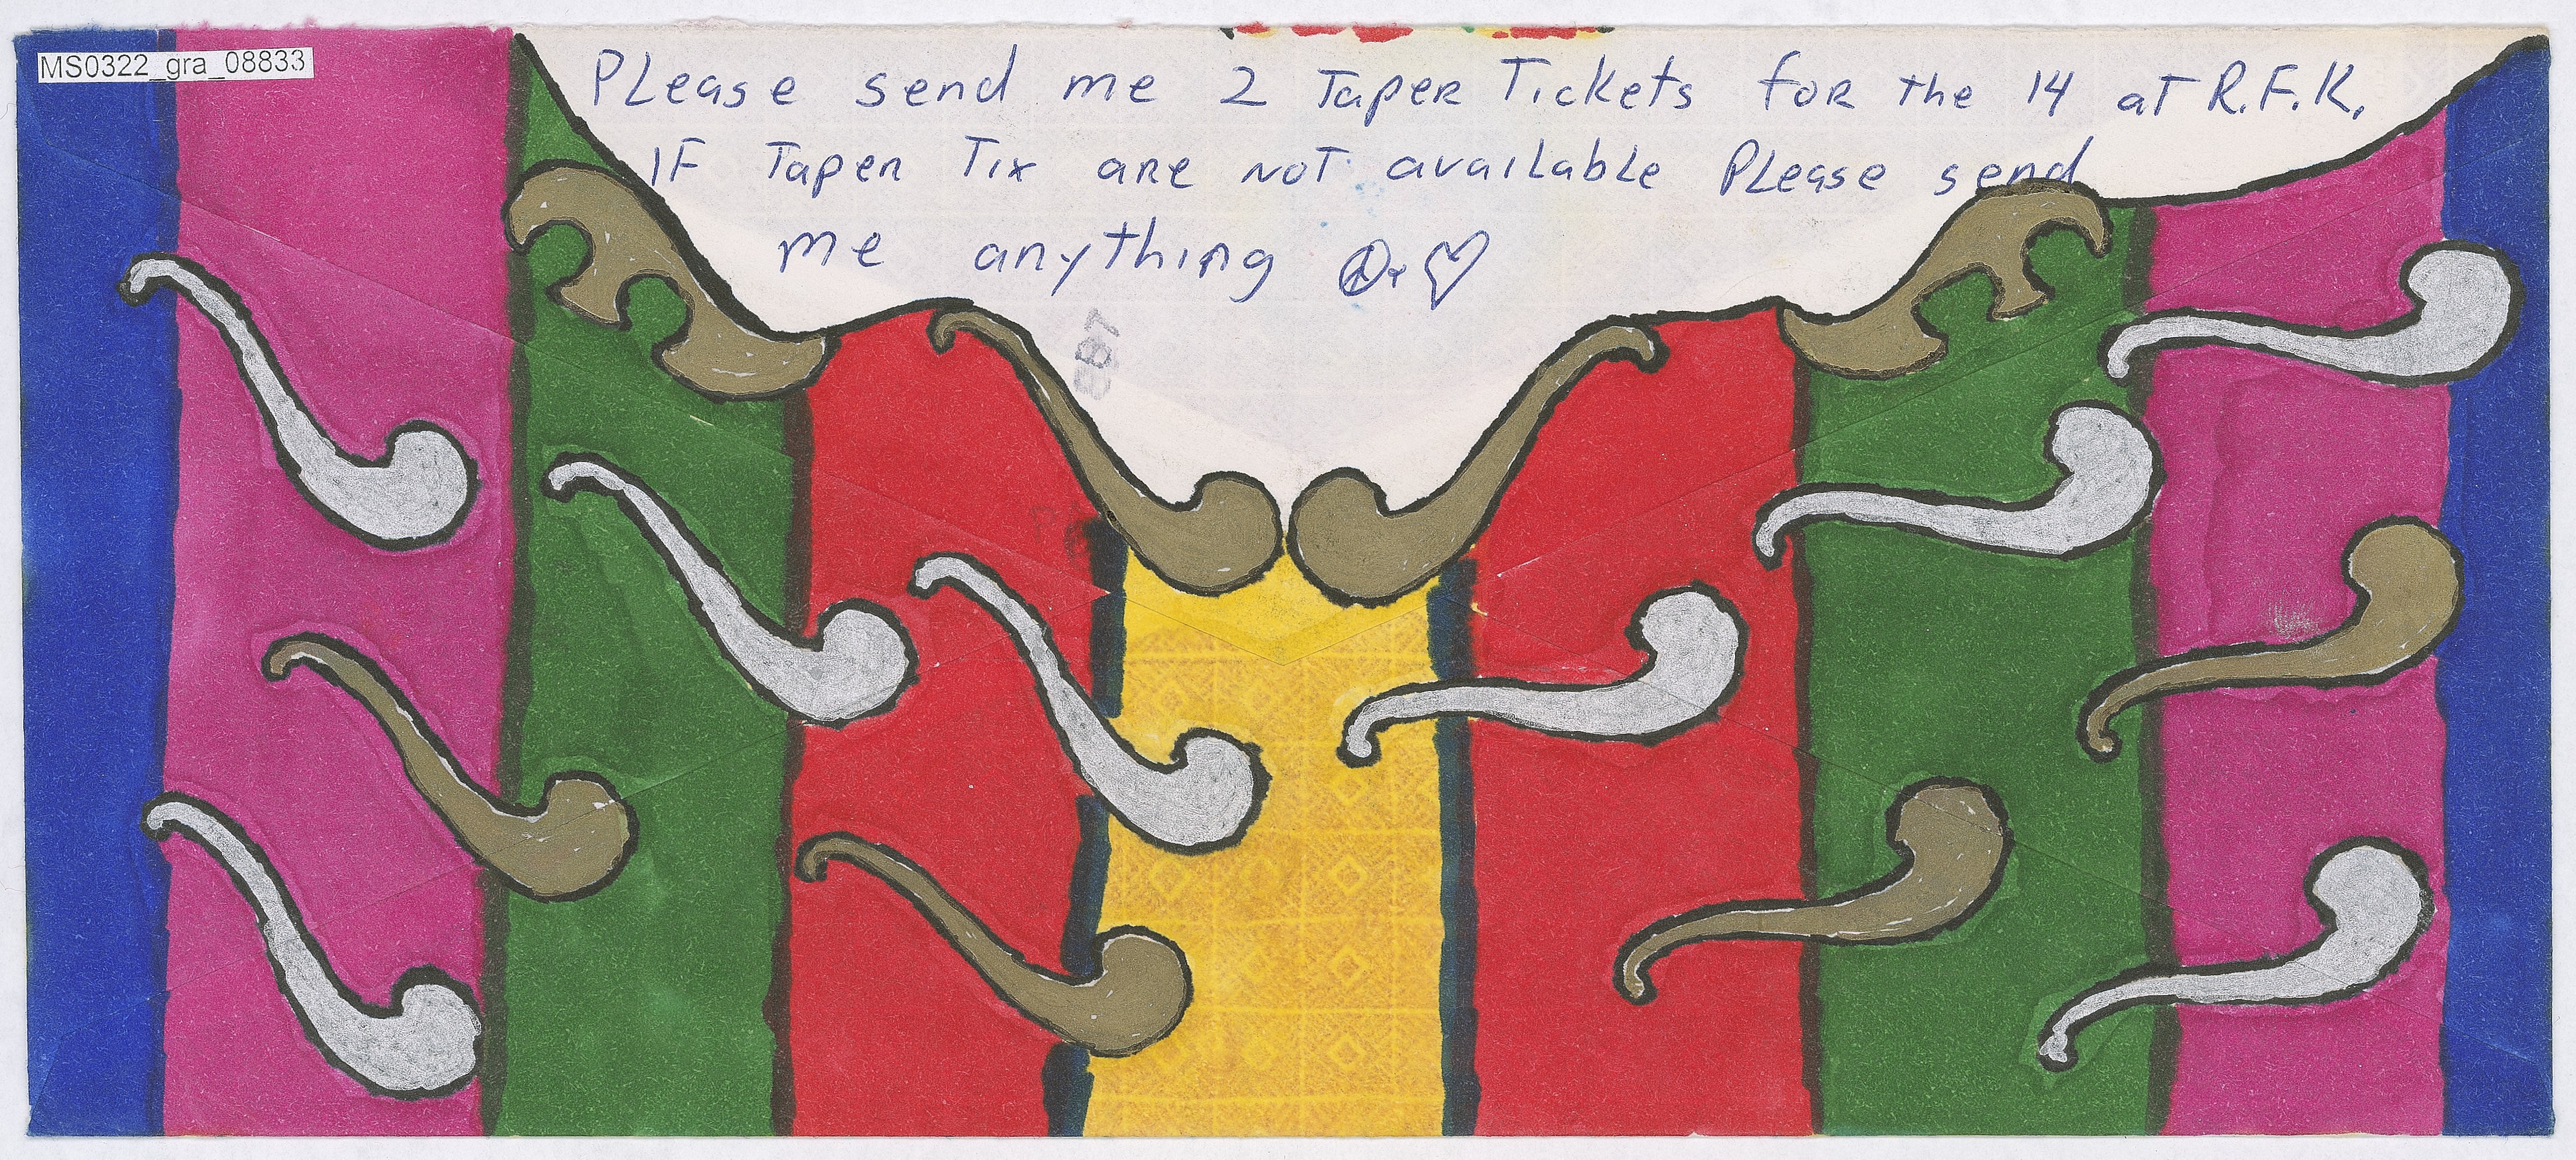 MS0322_gra_08833
PLease send me 2 Taper Tickets for the 14 at R.F.K.
IF Taper Tix are not available PLease send
me anything